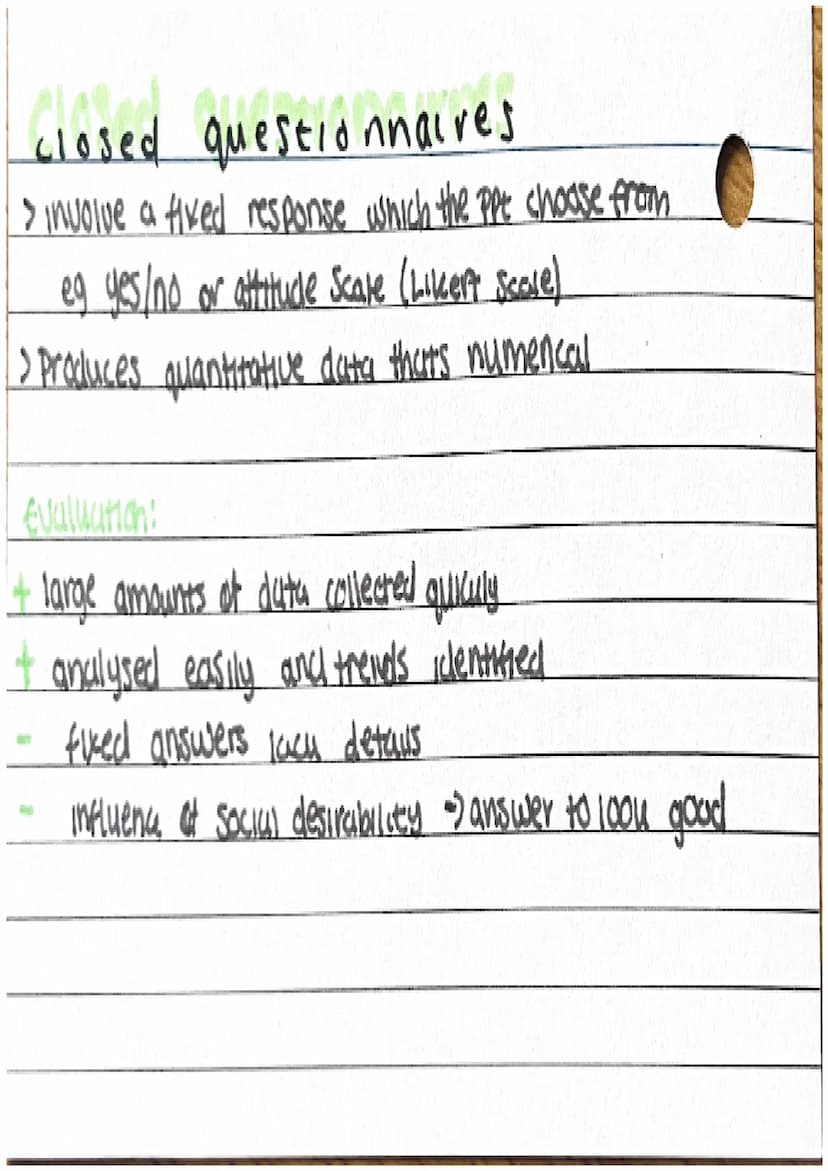 closed questionnaires
> involve a fixed response which the ppt choose from
eg yes/no or attitude scale (Likert scale)
> Produces quantitative data thats numerical
Evaluation:
+ large amounts of data collected quikuly
+ analysed easily and trends identified
- fixed answers lack details
- influence of social desirability → answer to look good